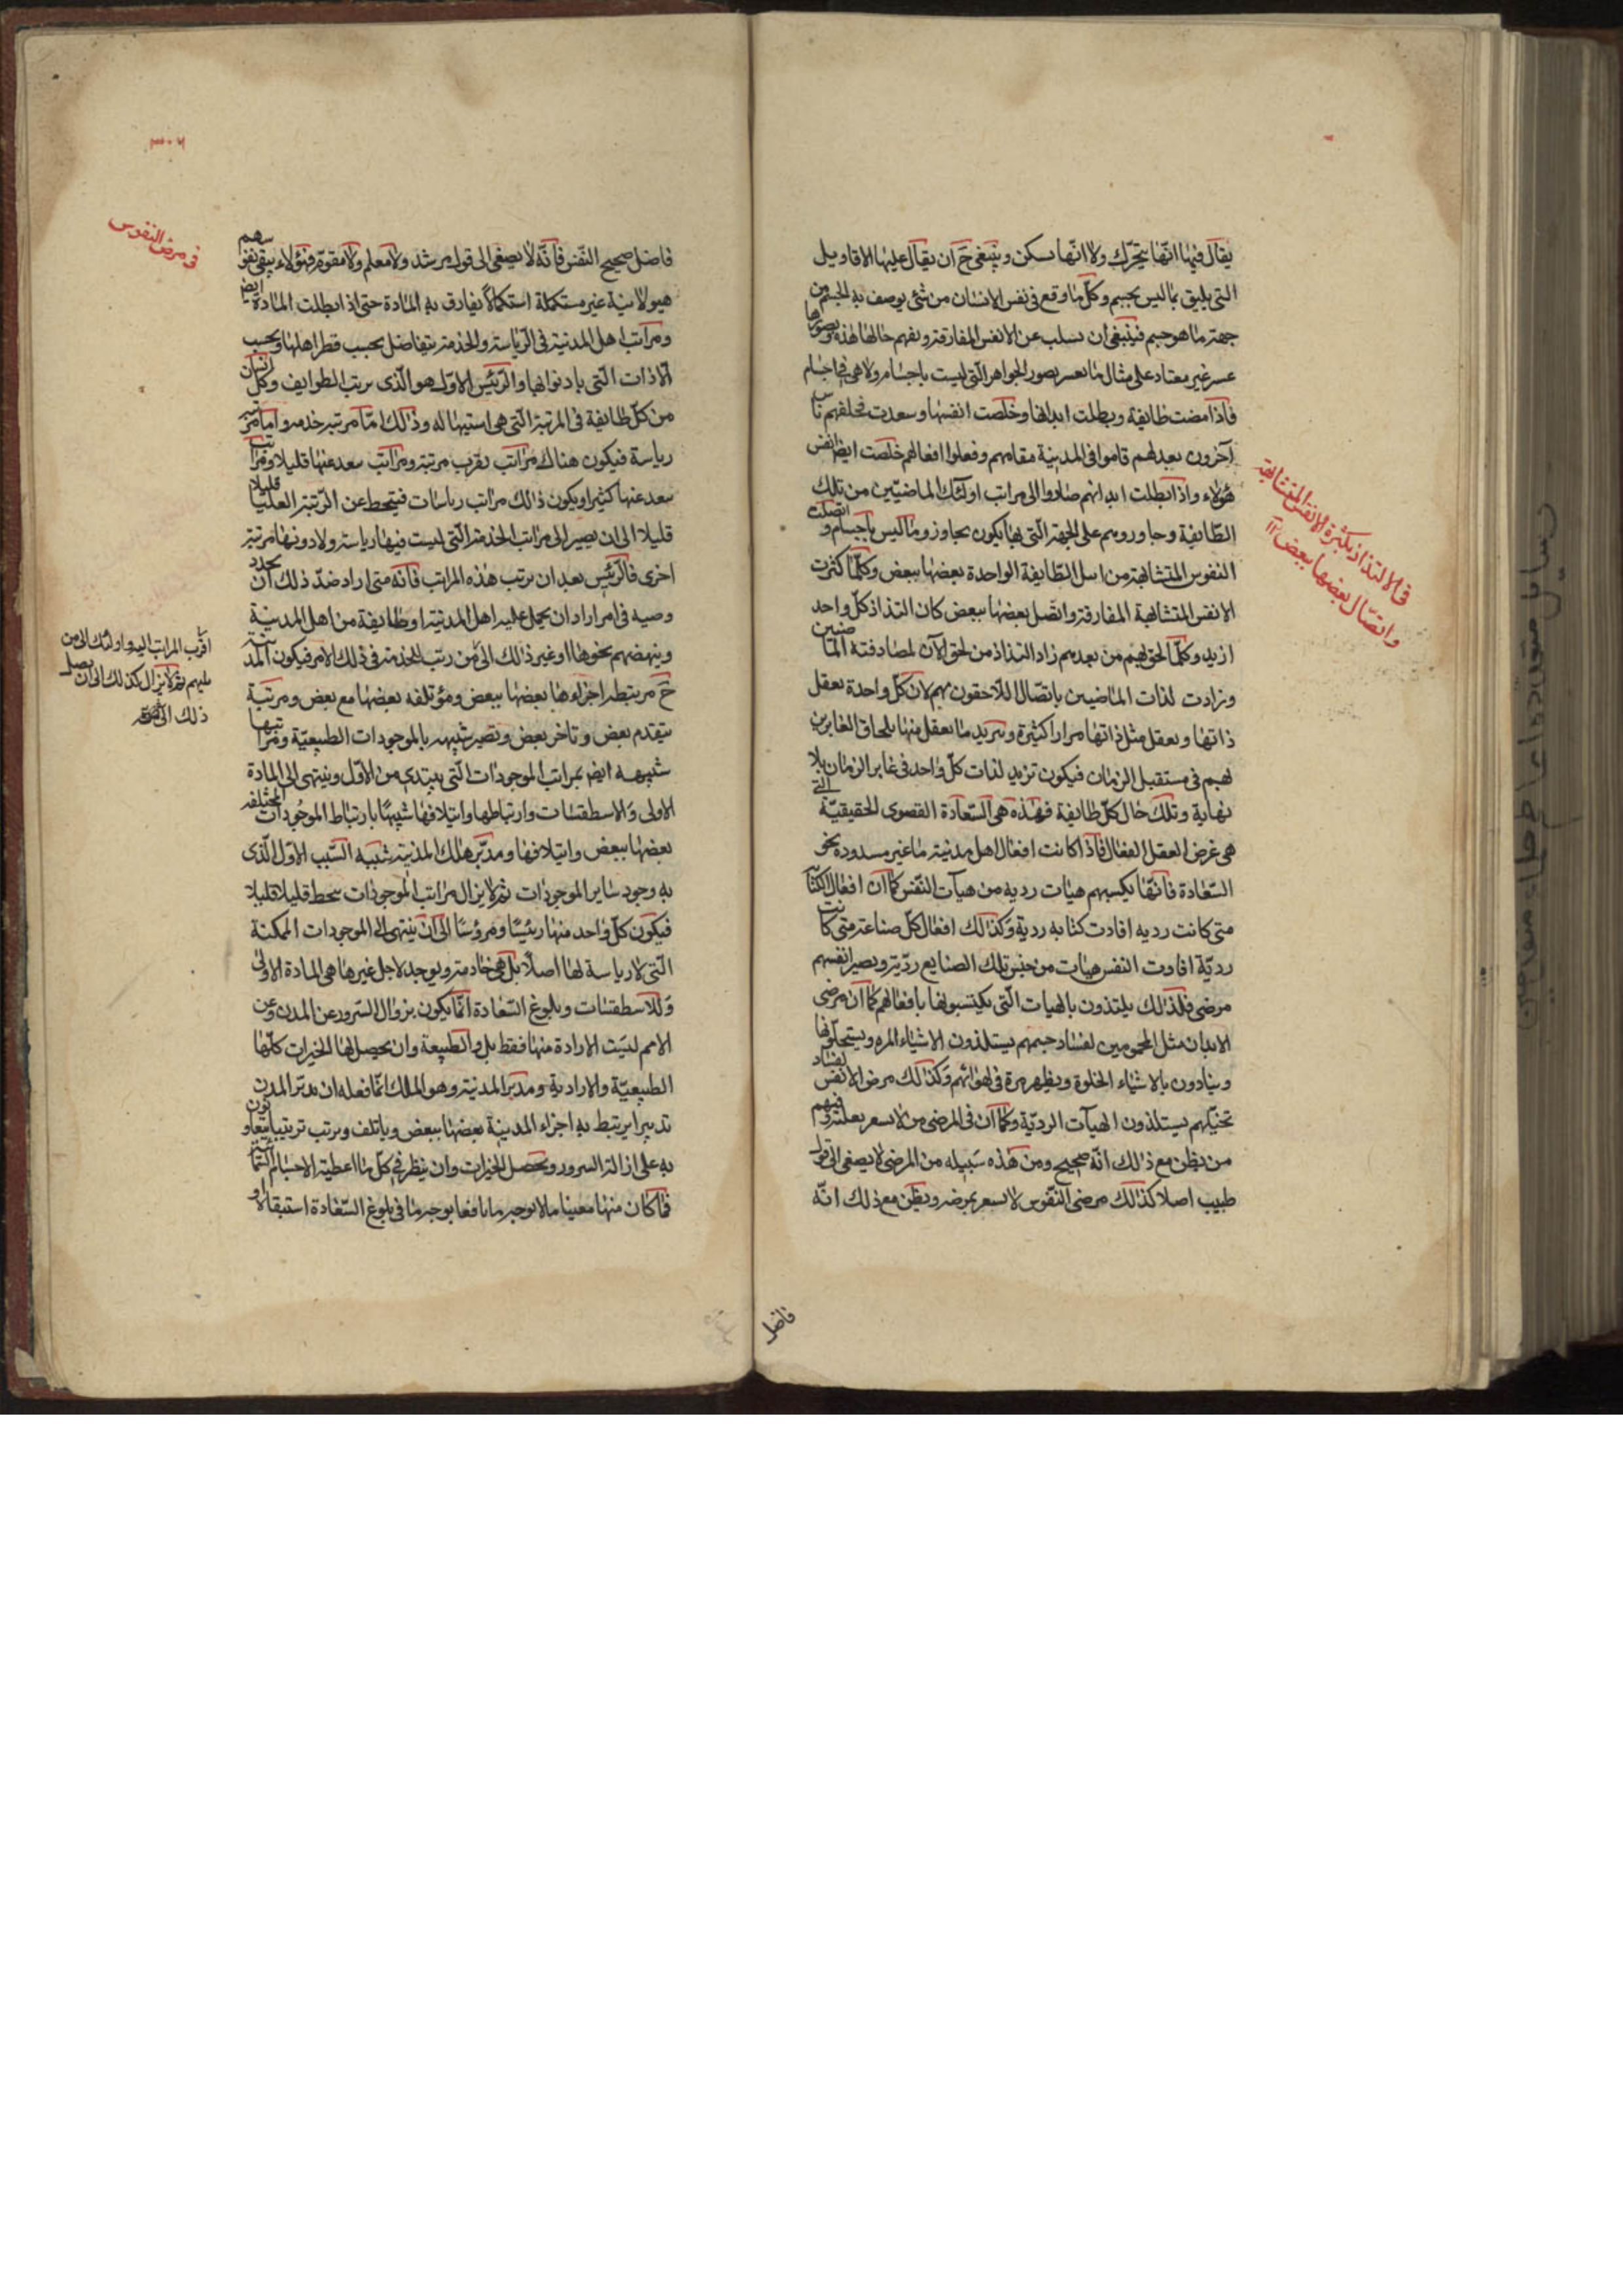 يقال فيها انّها يتحرّك ولا انّها تسكن وينبغى ح ان يقال عليها الاقاويل
التى يليق بما ليس بجسم وكلّ ما وقع فى نفس الانسان من شئ يوصف به الجسم من
جهة ما هو جسم فينبغى ان تسلب عن الانفس المفارقة ويفهم حالها هذه وتصورها
عسر غير معتاد على مثال ما يعسر تصور الجواهر الّتى ليست باجسام ولا هى فى اجسام
فاذا مضت طايفة وبطلت ابدانها وخلصت انفسها وسعدت فخلفهم ناس
آخرون بعدهم قاموا فى المدينة مقامهم وفعلوا افعالهم خلصت ايضا انفس
هؤلاء واذا بطلت ابدانهم صاروا الى مراتب اولئك الماضيّين من تلك
الطّايفة وجاوروهم على الجهة الّتى بها يكون تجاوز وما ليس باجسام واتصلت
النفوس المتشابهة من اهل الطّايفة الواحدة بعضها ببعض وكلّما كثرت
الانفس المتشابهة المفارقة واتّصل بعضها ببعض كان التذاذ كلّ واحد
ازيد وكلّما لحق بهم من بعدهم زاد التذاذ من لحق الآن لمصادفته الماضين
وزادت لذات الماضيين باتّصال اللّاحقون بهم لان كلّ واحدة تعقل
ذاتها وتعقل مثل ذاتها مرارا كثيرة وتزيد ما يعقل منها بلحاق الغابرين
لهم فى مستقبل الزمان فيكون تزيد لذات كلّ واحد فى غابر الزمان بلا
نهاية وتلك حال كلّ طايفة فهذه هى السّعادة القصوى الحقيقيّة التى
هى غرض العقل الفعال فاذا كانت افعال اهل مدنية ما غير مسدودة نحو
السّعادة فانّها يكسبهم هيات ردية من هيآت النّفس كما ان افعال الكتابة
متى كانت رديه افادت كتابه ردية وكذالك افعال كل صناعة متى كانت
رديّة افادت النفس هيات من جنس تلك الصنايع رديّة ويصير انفسهم
مرضى فلذالك يلتذون بالهيات الّتى يكتسبونها بافعالهم كما ان مرضى
الابدان مثل المحمومين لفساد حسهم يستلذون الاشياء المره ويستحلونها
ويتاذون بالاشياء الحلوة ويظهر مرة فى لهواتهم وكذالك مرض الانفس لفساد
تخيّلهم يستلذون الهيآت الرديّة وكما ان فى المرضى من لا يشعر بعلته وفيهم
من يظن مع ذالك انّه صحيح ومن هذه سبيله من المرضى لا يصغى الى قول
طبيب اصلا كذالك مرضى النّفوس لا يشعر بمرضه ويظن مع ذلك انّه
فى الالتذاذ بكثرة الانفس المتشابهة
واتّصال بعضها ببعض
فاضل
٣٠٦
فى مرض النفوس
فاضل صحيح النّفس فانّه لا يصغى الى قول مرشد ولا معلم ولا مقوّم فهؤلاء يبقى نفوسهم
هيولانية غير مستكملة استكمالا يفارق به المادة حتى اذ ابطلت المادة ايضا
ومراتب اهل المدنية فى الرّياسة والخدمة يتفاضل بحسب فطر اهلها وبحسب
الاذات الّتى بادنوابها والرّئيس الاول هو الّذى يرتب الطوايف وكلّ انسان
من كلّ طايفة فى المرتبة الّتى هى استيهاله وذالك امّا مرتبه خدمه واما مرتبه
رياسة فيكون هناك مراتب يقرب مرتبة ومراتب تبعد عنها قليلا ومراتب
تبعد عنها كثيرا ويكون ذالك مراتب رياسات فيتحط عن الرّتبة العليا قليلا
قليلا الى ان يصير الى مراتب الخدمة التى ليست فيها رياسة ولا دونها مرتبة
اخرى فالرّئيس بعد ان يرتب هذه المراتب فانّه متى اراد ضدّ ذلك ان يحدد
وصيه فى امر اراد ان يحمل عليه اهل المدنية او طايفة من اهل المدنية
وينهضهم نحوها اوغير ذالك الى من رتب للخدمة فى ذلك الامر فيكون المدينة
ح مرتبطه اجزاءها بعضها ببعض ومؤتلفه بعضها مع بعض ومرتبة
بتقدم بعض وتاخر بعض وتصير شبيهه بالموجودات الطبيعيّة ومراتبها
شبيهه ايضا بمراتب الموجودات الّتى يبتدى من الاوّل وينتهى الى المادة
الاولى والاسطقسات وارتباطها وايتلافها شبيها بارتباط الموجودات المختلفه
بعضها ببعض وايتلافها ومدبّر هالك المدنية شبيه السّبب الاول الّذى
به وجود ساير الموجودات ثمّ لا يزال مراتب الموجودات ينحط قليلا قليلا
فيكون كلّ واحد منها رئيسًا ومرؤسًا الى ان ينتهى الى الموجودات الممكنة
الّتى لا رياسة لها اصلا بل هى خادمة ويوجد لاجل غيرها هى المادة الاولى
وللاسطقسات وبلوغ السّعادة انّما يكون بزوال السّرور عن المدن وعن
الامم ليست الارادة منها فقط بل والطبيعة وان يحصل لها الخيرات كلّها
الطبيعيّة والارادية ومدبر المدنية وهو الملك انّما فعله ان يدبّر المدن
تدبيرا يرتبط به اجزاء المدينة بعضها ببعض وياتلف ويرتب ترتيبا يتعاونون
به على ازالة السرور وتحصل الخيرات وان ينظر فى كلّ ما اعطيته الاجسام السّمائية
فما كان منها معينا مالا بوجه ما نافعا بوجه ما فى بلوغ السّعادة استبقاه
اقرب المراتب اليه واولئك الى من
يليهم ثمّ لا يزال كذلك الى ان يصل
ذلك الى